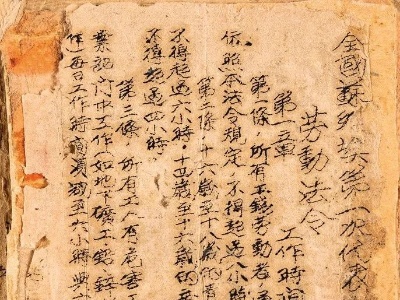 全國蘇埃第一次代表
勞動法令
第一章 工作時
第一條，所有工錢勞動者
依照本法令規定，不得超過八小時
第二條，十六歲至十八歲的青
不得超過六小時，十四歲至十六歲的
不得超過四小時
第三條，所有工人有危害工
業部門中工作如地下礦工
每日工作時間須減至六小時